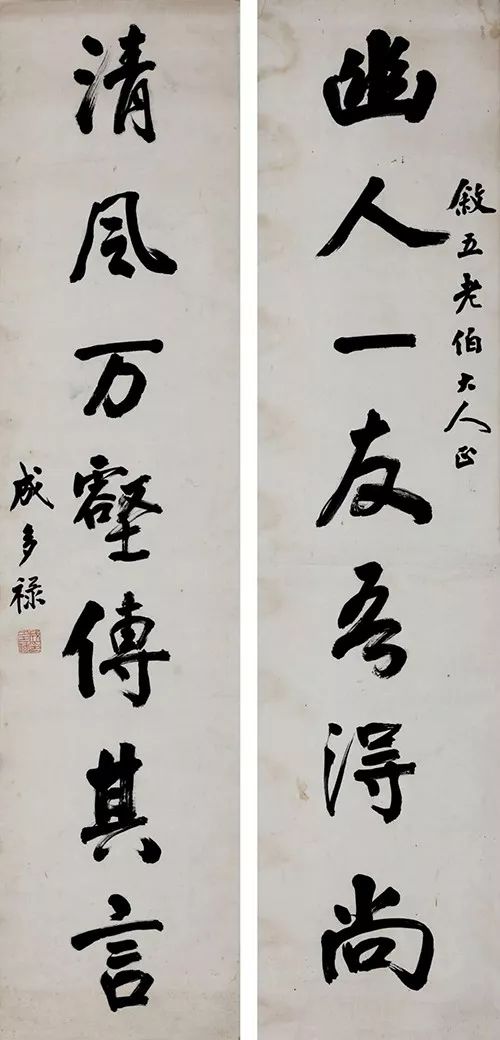 敍五老伯大人正
幽人一友吾得尚
清风万壑傳其言
成多禄